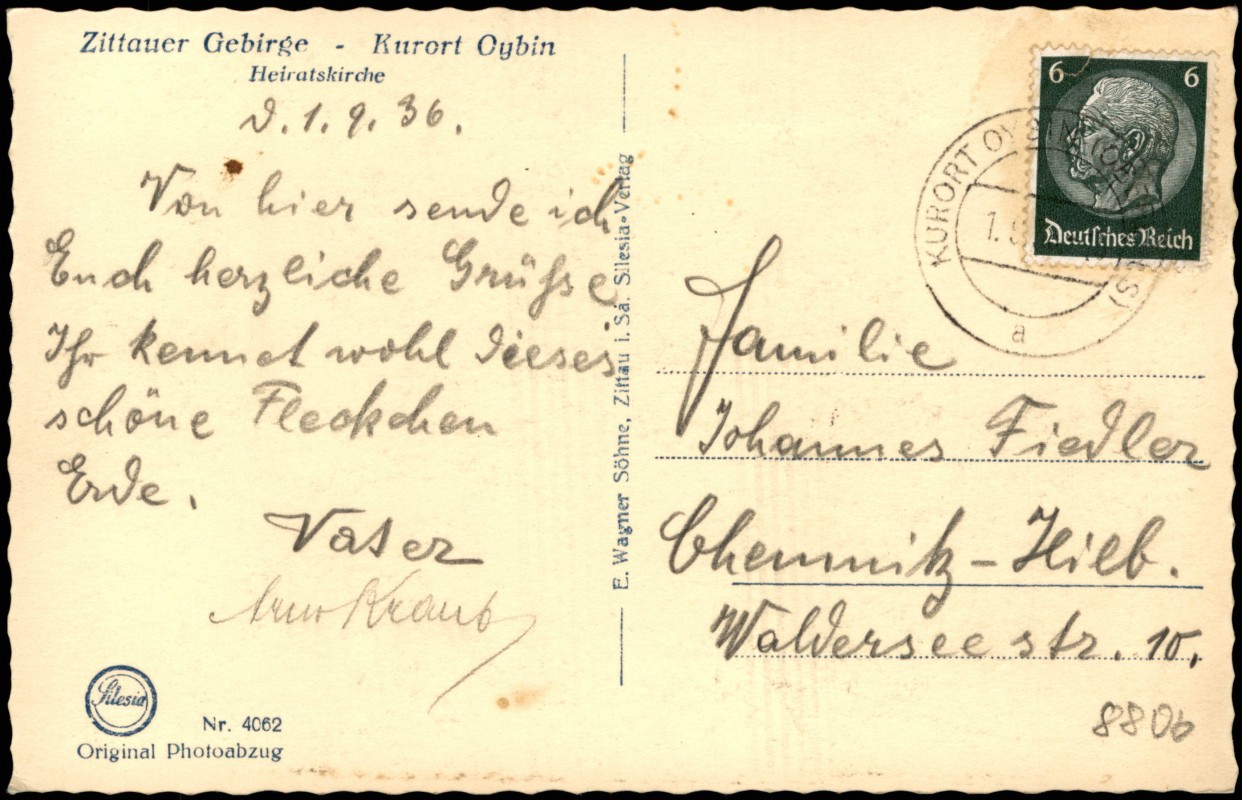 Zittauer Gebirge - Kurort Oybin
Heiratskirche
d. 1. 9. 36.
Von hier sende ich
Euch herzliche Grüße
Ihr kennet wohl dieses
schöne Fleckchen
Erde.
Vater
Silesia
Nr. 4062
Original Photoabzug
E. Wagner Söhne, Zittau i. Sa. Silesia-Verlag
6 6
Deutsches Reich
KURORT OYBIN
1. 9
a
Familie
Johannes Fiedler
Chemnitz-Hilb.
Walderseestr. 10.
8806